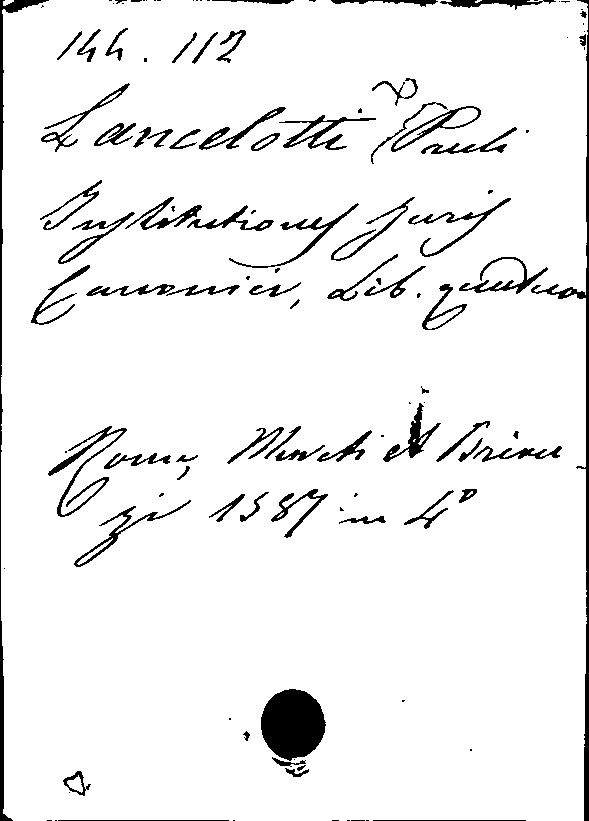 144.112
Lancelotti Pauli
Institutiones juris
Canonici, Lib. quatuor
Roma, et Brien-
zi 1587 in 4º